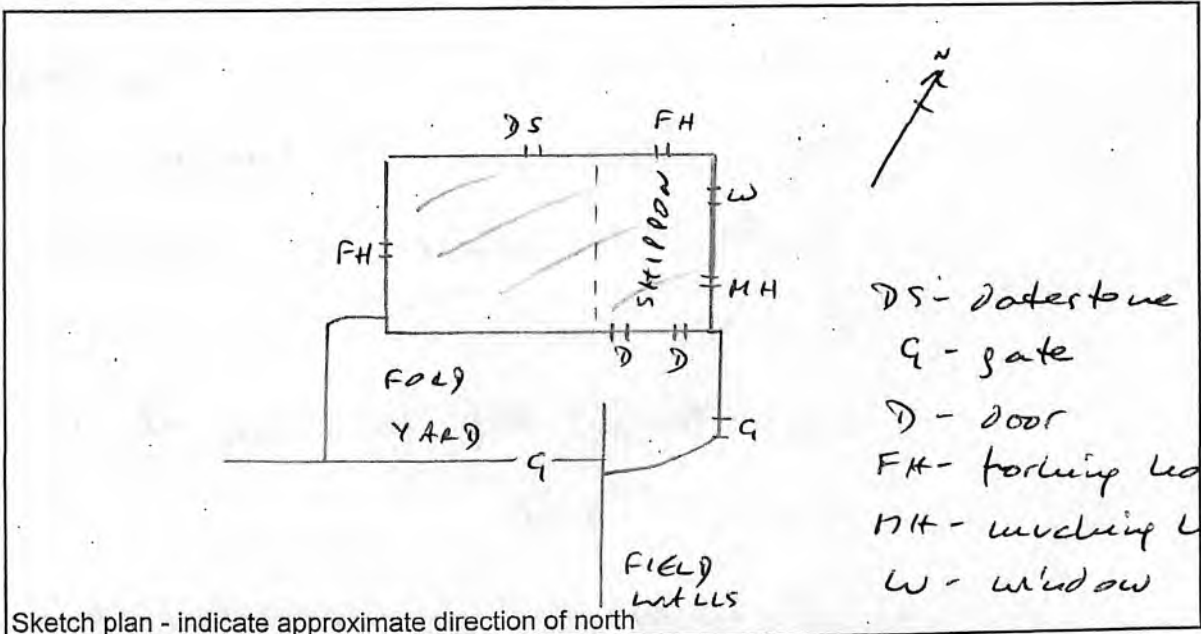 N
DS
FH
W
FH
SHIPPON
MH
D D
FOLD
YARD
G
G
FIELD
WALLS
DS - Datestone
G - gate
D - Door
FH - forking
MH - mucking
W - window
Sketch plan - indicate approximate direction of north